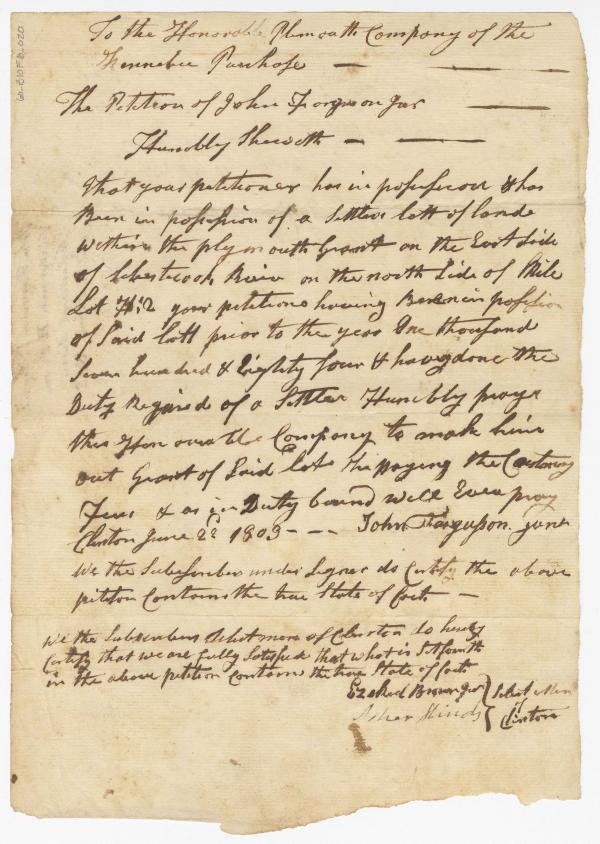 To the Honorable Plimouth Company of the
Kennebec Purchase
The Petition of John Forguson Jur
Humbly Sheweth
That your petitioner has in possession & has
Been in possession of a Settlers lott of lande
within the plymouth Grant on the East Side
of Sebesticook River on the north Side of Mile
Lot No 2 your petitioner having Been in possession
of Said lott prior to the year One thousand
Seven hundred & Eighty four & haveg done the
Duty Required of a Settler Humbly prays
this Honourable Company to make him
out Grant of Said lott He paying the Customy
Fees & as in Duty bound will Ever pray
Clinton June 2d 1803 John Forguson Junr
We the Subscribers under Signed do Certify the above
petition Contains the true State of facts
We the Subscribers Select men of Clinton do hereby
Certify that we are fully Satisfied that what is Setfourth
in the above petition Contains the true State of facts
Ezekiel Brown Jur Select Men
Asher Hinds of Clinton